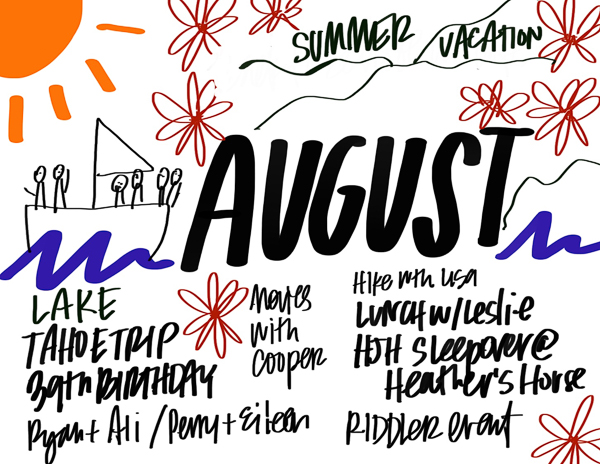 SUMMER VACATION
AUGUST
LAKE
TAHOE TRIP
39th BIRTHDAY
Ryan + Ali / Perry + Eileen
Movies
with
Cooper
Hike with Lisa
LUNCH w/ Leslie
Sleepover @
Heather's House
RIDDLER event